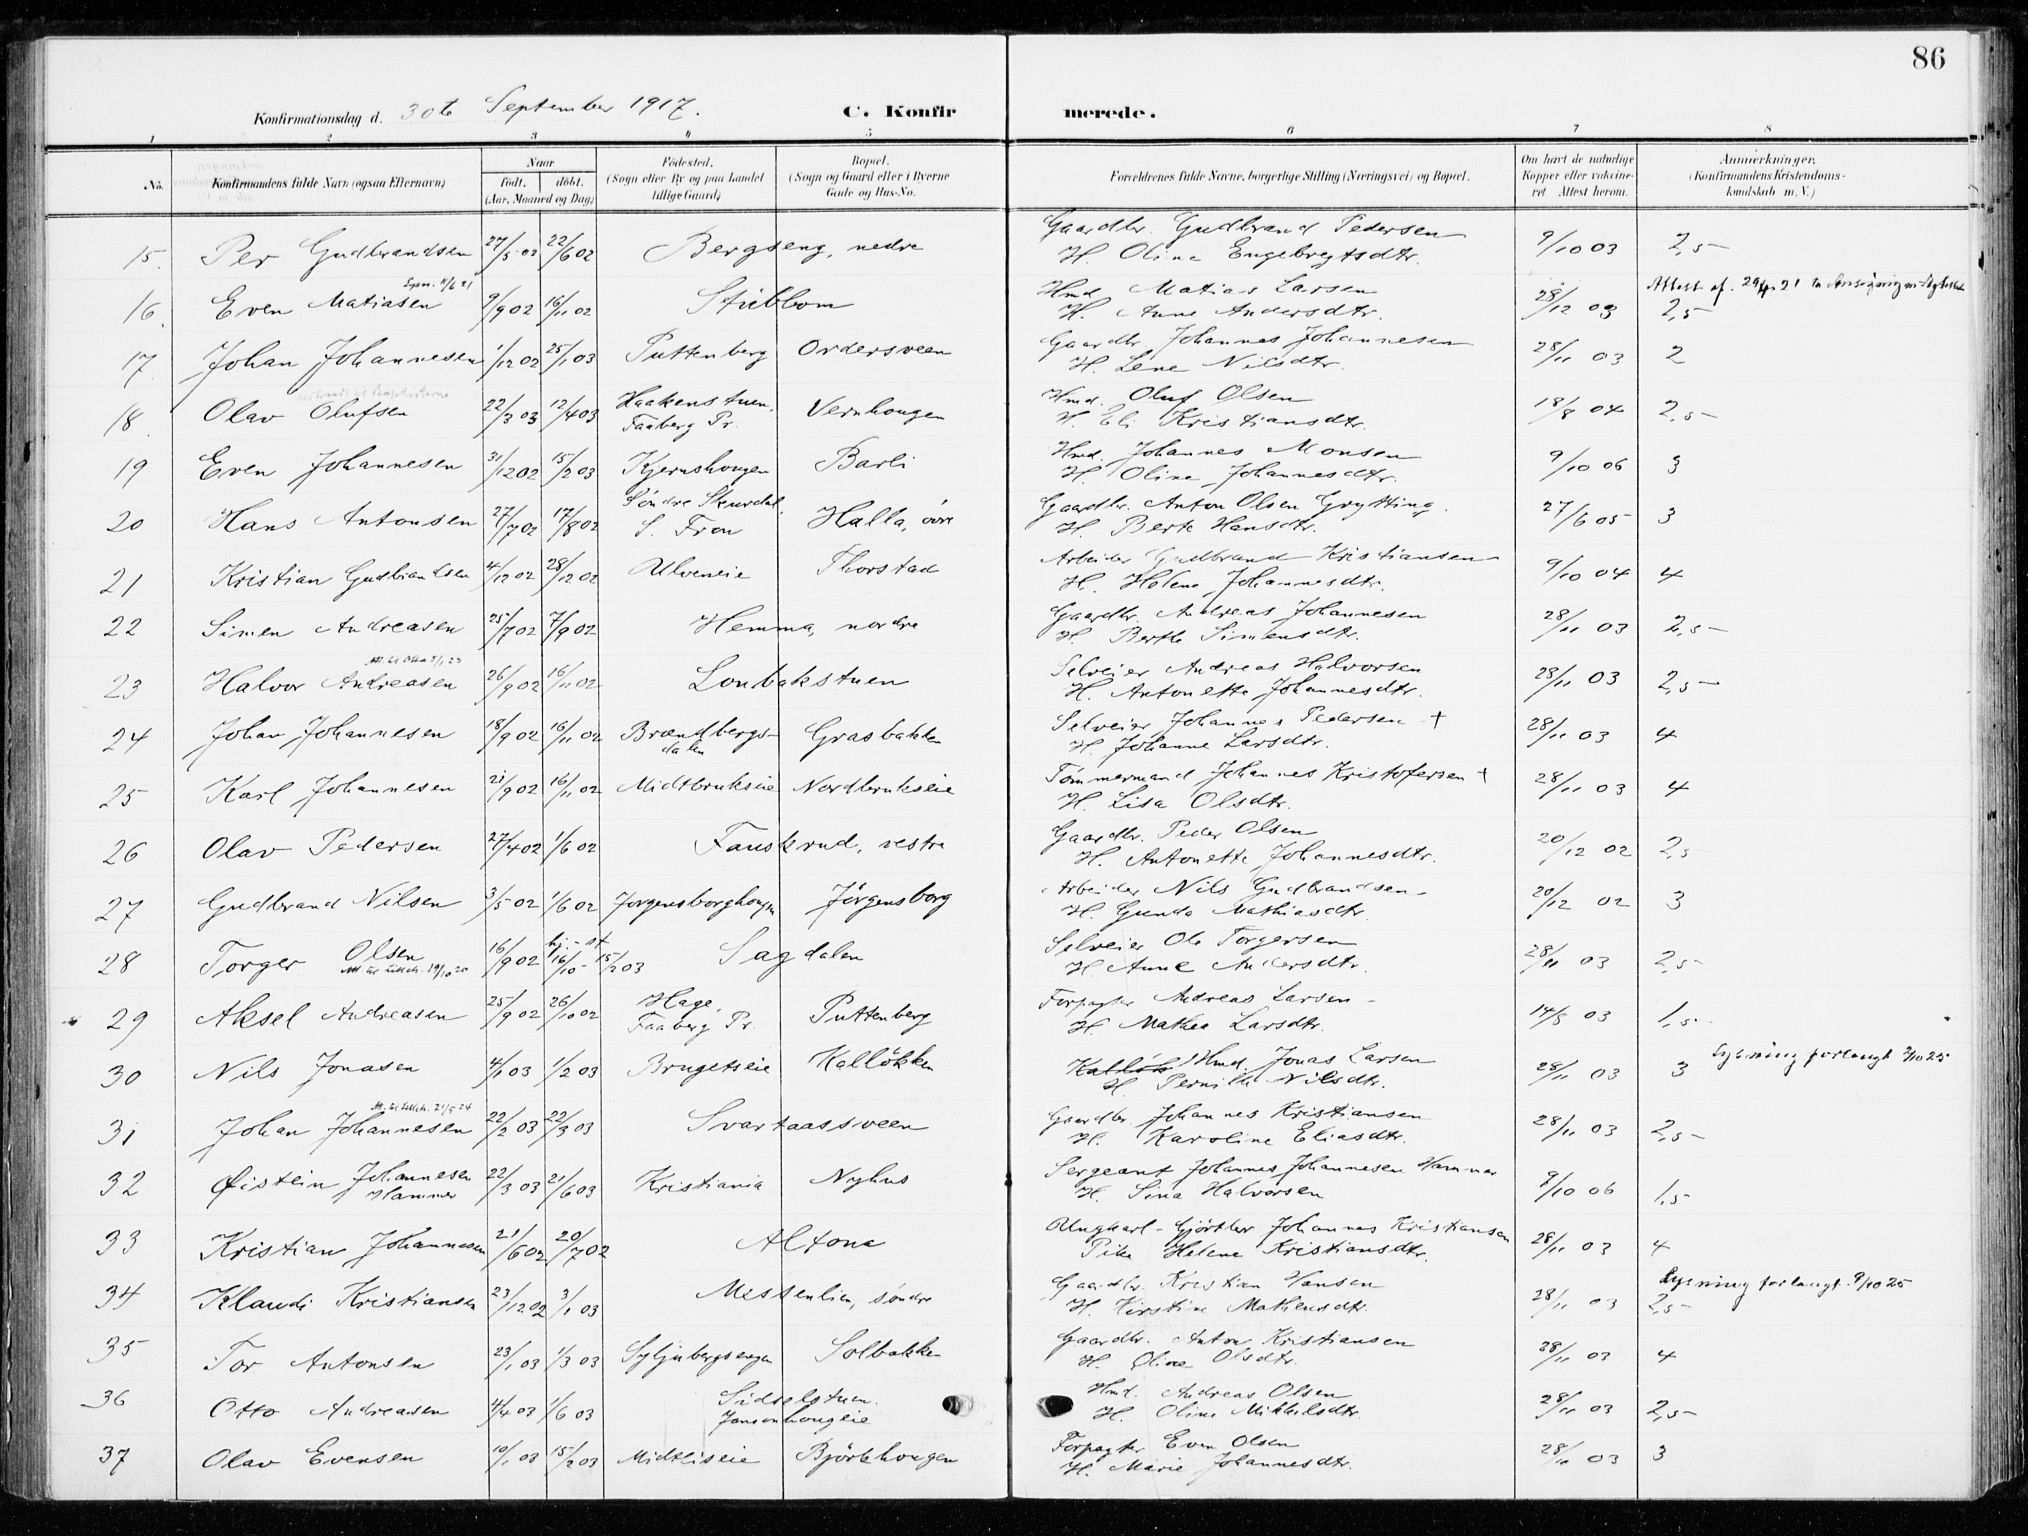 86
Konfirmationsdag d. 30te September 1917. C. Konfirmerede.
1 2 3 4 5 6 7 8
No. Konfirmandens fulde Navn (ogsaa Efternavn) Naar født, døbt. (Aar, Maaned og Dag) Födested. (Sogn eller By og paa Landet tillige Gaard) Bopæl. (Sogn og Gaard eller i Byerne Gade og Hus-No. Forældrenes fulde Navne, borgerlige Stilling (Næringsvei) og Bopæl. Om havt de naturlige Kopper eller vaccineret. Attest herom. Anmerkninger. (Konfirmandens Kristendomskundskab m. V.)
15. Per Gudbrandsen 27/5 02 22/6 02 Bergseng, nedre Gaardbr. Gudbrand Pedersen 9/10 03 2,5
H. Oline Engebregtsdtr.
16. Even Matiasen 9/9 02 16/11 02 Stubbom Hmd. Matias Larsen 28/12 03 2,5
H. Anne Andersdtr.
17. Johan Johannesen 1/12 02 25/1 03 Puttenberg Ordersveen Gaardbr. Johannes Johannesen 28/11 03 2
H. Lene Nilsdtr.
18. Olav Olufsen 22/3 03 12/4 03 Haakenstuen, Faaberg Pr. Vernhougen Hmd. Oluf Olsen 18/8 04 2,5
H. Eli Kristiansdtr.
19 Even Johannesen 31/12 02 15/2 03 Kjernshougen Barli Hmd. Johannes Monsen 9/10 06 3
H. Oline Johannesdtr.
20 Hans Antonsen 27/7 02 17/8 02 Söndre Skurdal, S. Fron Halla, övre Gaardbr. Anton Olsen Grytting. 27/6 05 3
H. Berte Hansdtr.
21 Kristian Gudbrandsen 4/12 02 28/12 02 Ulveneie Thorstad Arbeider Gudbrand Kristiansen 9/10 04 4
H. Helene Johannesdtr.
22 Simen Andreasen 25/7 02 7/9 02 Hemma, nordre Gaardbr. Andreas Johannesen 28/11 03 2,5
H. Berthe Simensdtr.
23 Halvor Andreasen 26/9 02 16/11 02 Lonbakstuen Selveier Andreas Halvorsen 28/11 03 2,5
H. Antonette Johannesdtr.
24 Johan Johannesen 18/9 02 16/11 02 Brændbergsdalen Grasbakken Selveier Johannes Pedersen + 28/11 03 4
H. Johanne Larsdtr.
25 Karl Johannesen 21/9 02 16/11 02 Midtbrukseie Nordbrukseie Tömmermand Johannes Kristofersen + 28/11 03 4
H. Lisa Olsdtr.
26 Olav Pedersen 27/4 02 1/6 02 Fauskrud, vestre Gaardbr. Peder Olsen 20/12 02 2,5
H. Antonette Johannesdtr.
27 Gudbrand Nilsen 3/5 02 1/6 02 Jorgensborghougen Jörgensborg Arbeider Nils Gudbrandsen 20/12 02 3
H. Gunda Mathiasdtr.
28 Torger Olsen 16/9 02 hj. 16/10 - st. 15/2 03 Sagdalen Selveier Ole Torgersen 28/11 03 2,5
H. Anne Andersdtr.
29 Aksel Andreasen 25/9 02 26/10 02 Hage, Faaberg Pr. Puttenberg Forpagter Andreas Larsen 14/5 03 1,5
H. Mathea Larsdtr.
30 Nils Jonasen 4/1 03 1/2 03 Brugetseie Kallökken Hmd. Jonas Larsen 28/11 03 3 Lysning forlangt 9/10 25
H. Pernille Nilsdtr.
31 Johan Johannesen 22/2 03 22/3 03 Svartaassveen Gaardbr. Johannes Kristiansen 28/11 03 2,5
H. Karoline Eliasdtr.
32 Øistein Johannesen Hammer 22/3 03 21/6 03 Kristiania Nyhus Sergeant Johannes Johannesen Hammer 9/10 06 1,5
H. Sina Halvorsen
33 Kristian Johannesen 21/6 02 20/7 02 Altona Ungkarl - Gjörtler Johannes Kristiansen 28/11 03 4
Pike Helene Kristiansdtr.
34 Klaudi Kristiansen 23/12 02 3/1 03 Messenlien, söndre Gaardbr. Kristian Hansen 28/11 03 2,5 Lysning forlangt. 9/10 25
H. Kirstine Mathensdtr.
35 Tor Antonsen 23/1 03 1/3 03 Solbakken Gaardbr. Anton Kristiansen 28/11 03 4
H. Oline Olsdtr.
36 Otto Andreasen 4/4 03 1/6 03 Sidselstuen. Hmd. Andreas Olsen 28/11 03 2,5
H. Oline Mikkelsdtr.
37 Olav Evensen 10/1 03 15/2 03 Midtliseie Björkhougen Forpagter Even Olsen 28/11 03 3
H. Marie Johannesdtr.